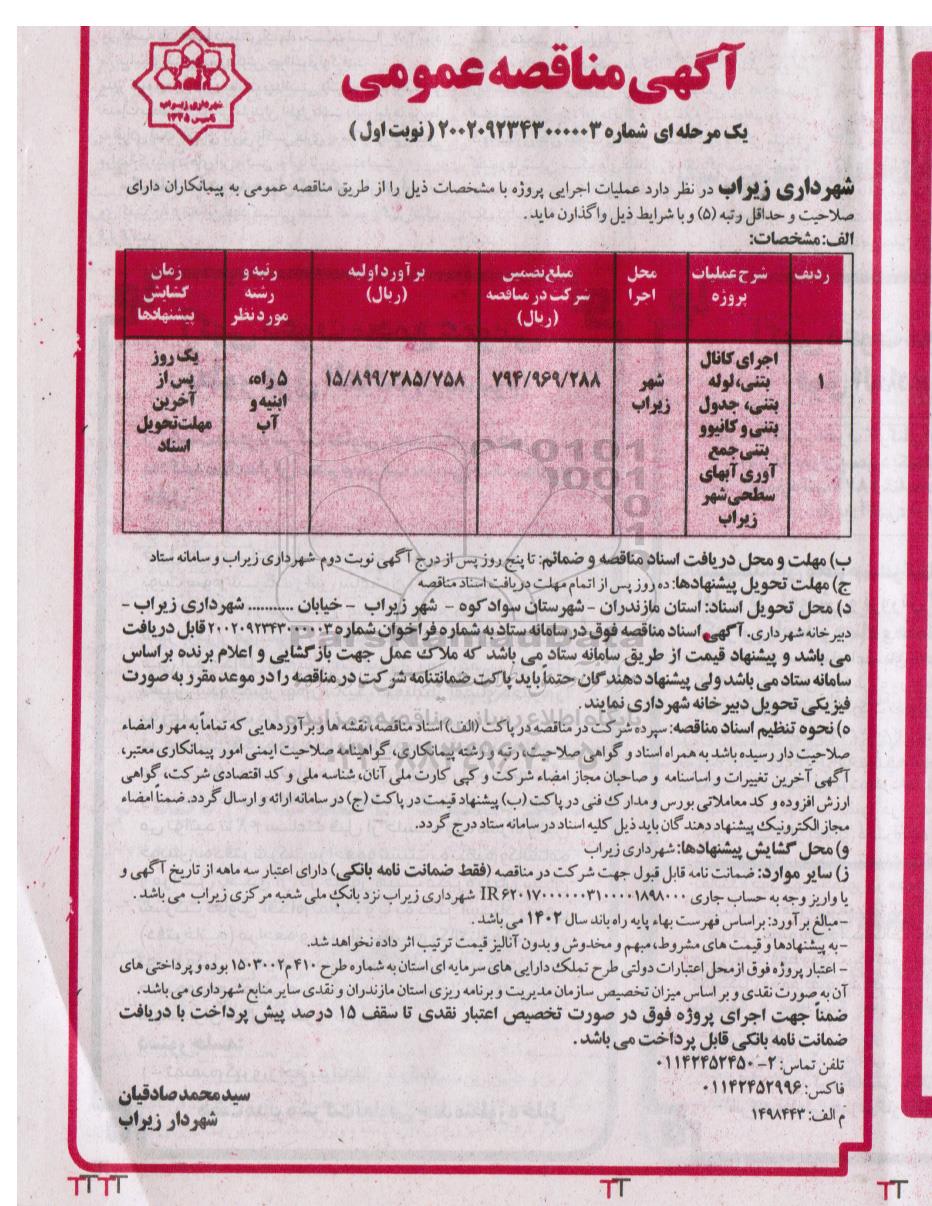 آگهی مناقصه عمومی
شهرداری زیراب
تاسیس ۱۳۳۵
یک مرحله ای شماره ۲۰۰۲۰۹۲۳۴۳۰۰۰۰۰۳ (نوبت اول)
شهرداری زیراب در نظر دارد عملیات اجرایی پروژه با مشخصات ذیل را از طریق مناقصه عمومی به پیمانکاران دارای
صلاحیت و حداقل رتبه (۵) و با شرایط ذیل واگذارن ماید.
الف: مشخصات:
ردیف
شرح عملیات پروژه
محل اجرا
مبلغ تضمین شرکت در مناقصه (ریال)
برآورد اولیه (ریال)
رتبه و رشته مورد نظر
زمان گشایش پیشنهادها
۱
اجرای کانال
بتنی، لوله
بتنی، جدول
بتنی و کانیوو
بتنی جمع
آوری آبهای
سطحی شهر
زیراب
شهر
زیراب
۷۹۴/۹۶۹/۲۸۸
۱۵/۸۹۹/۳۸۵/۷۵۸
۵ راه،
ابنیه و
آب
یک روز
پس از
آخرین
مهلت تحویل
اسناد
ب) مهلت و محل دریافت اسناد مناقصه و ضمائم: تا پنج روز پس از درج آگهی نوبت دوم شهرداری زیراب و سامانه ستاد
ج) مهلت تحویل پیشنهادها: ده روز پس از اتمام مهلت دریافت اسناد مناقصه
د) محل تحویل اسناد: استان مازندران - شهرستان سوادکوه - شهر زیراب - خیابان ........... شهرداری زیراب -
دبیرخانه شهرداری. آگهی اسناد مناقصه فوق در سامانه ستاد به شماره فراخوان شماره ۲۰۰۲۰۹۲۳۴۳۰۰۰۰۰۳ قابل دریافت
می باشد و پیشنهاد قیمت از طریق سامانه ستاد می باشد که ملاک عمل جهت بازگشایی و اعلام برنده براساس
سامانه ستاد می باشد ولی پیشنهاد دهندگان حتماً باید پاکت ضمانتنامه شرکت در مناقصه را در موعد مقرر به صورت
فیزیکی تحویل دبیرخانه شهرداری نمایند.
ه) نحوه تنظیم اسناد مناقصه: سپرده شرکت در مناقصه در پاکت (الف) اسناد مناقصه، نقشه ها و برآوردهایی که تماماً به مهر و امضاء
صلاحیت دار رسیده باشد به همراه اسناد و گواهی صلاحیت رتبه و رشته پیمانکاری، گواهینامه صلاحیت ایمنی امور پیمانکاری معتبر،
آگهی آخرین تغییرات و اساسنامه و صاحبان مجاز امضاء شرکت و کپی کارت ملی آنان، شناسه ملی و کد اقتصادی شرکت، گواهی
ارزش افزوده و کد معاملاتی بورس و مدارک فنی در پاکت (ب) پیشنهاد قیمت در پاکت (ج) در سامانه ارائه و ارسال گردد. ضمناً امضاء
مجاز الکترونیک پیشنهاد دهندگان باید ذیل کلیه اسناد در سامانه ستاد درج گردد.
و) محل گشایش پیشنهادها: شهرداری زیراب
ز) سایر موارد: ضمانت نامه قابل قبول جهت شرکت در مناقصه (فقط ضمانت نامه بانکی) دارای اعتبار سه ماهه از تاریخ آگهی و
یا واریز وجه به حساب جاری IR ۶۲۰۱۷۰۰۰۰۰۰۳۱۰۰۰۰۱۸۹۸۰۰۰ شهرداری زیراب نزد بانک ملی شعبه مرکزی زیراب می باشد.
- مبالغ برآورد: براساس فهرست بهاء پایه راه باند سال ۱۴۰۲ می باشد.
- به پیشنهادها و قیمت های مشروط، مبهم و مخدوش و بدون آنالیز قیمت ترتیب اثر داده نخواهد شد.
- اعتبار پروژه فوق از محل اعتبارات دولتی طرح تملک دارایی های سرمایه ای استان به شماره طرح ۴۱۰م۱۵۰۳۰۰۲ بوده و پرداختی های
آن به صورت نقدی و بر اساس میزان تخصیص سازمان مدیریت و برنامه ریزی استان مازندران و نقدی سایر منابع شهرداری می باشد.
ضمناً جهت اجرای پروژه فوق در صورت تخصیص اعتبار نقدی تا سقف ۱۵ درصد پیش پرداخت با دریافت
ضمانت نامه بانکی قابل پرداخت می باشد.
تلفن تماس: ۲-۰۱۱۴۲۴۵۲۴۵۰
فاکس: ۰۱۱۴۲۴۵۲۹۹۶
م الف: ۱۴۹۸۴۴۳
سیدمحمد صادقیان
شهردار زیراب